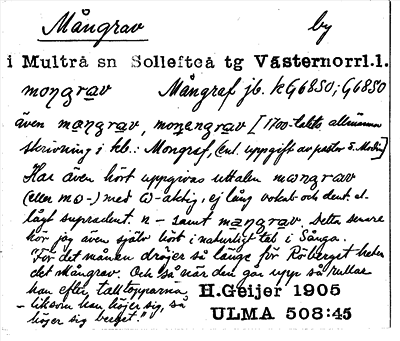 Mångrav by
i Multrå sn Sollefteå tg Västernorrl.l.
mongrav Mångraf jb. kG6850; G6850
även mangrav, monengrav [1700-talets allmänna
skrivning i kb.: Mongraf, (enl. uppgift av pastor S. Modin]
Har även hört uppgivas uttalen mωngrav
(eller mω-) med ω-aktig, ej lång vokal och dent. el.
lågt supradent. n - samt mangrav. Detta senare
hör jag även själv hört i naturligt tal i Sånga.
"För det månen dröjer så länge för Rörberget heter
det Mångrav. Och så när den går upp så rullar
han efter talltopparna H.Geijer 1905
- liksom han höjer sig, så
höjer sig berget." ULMA 508:45